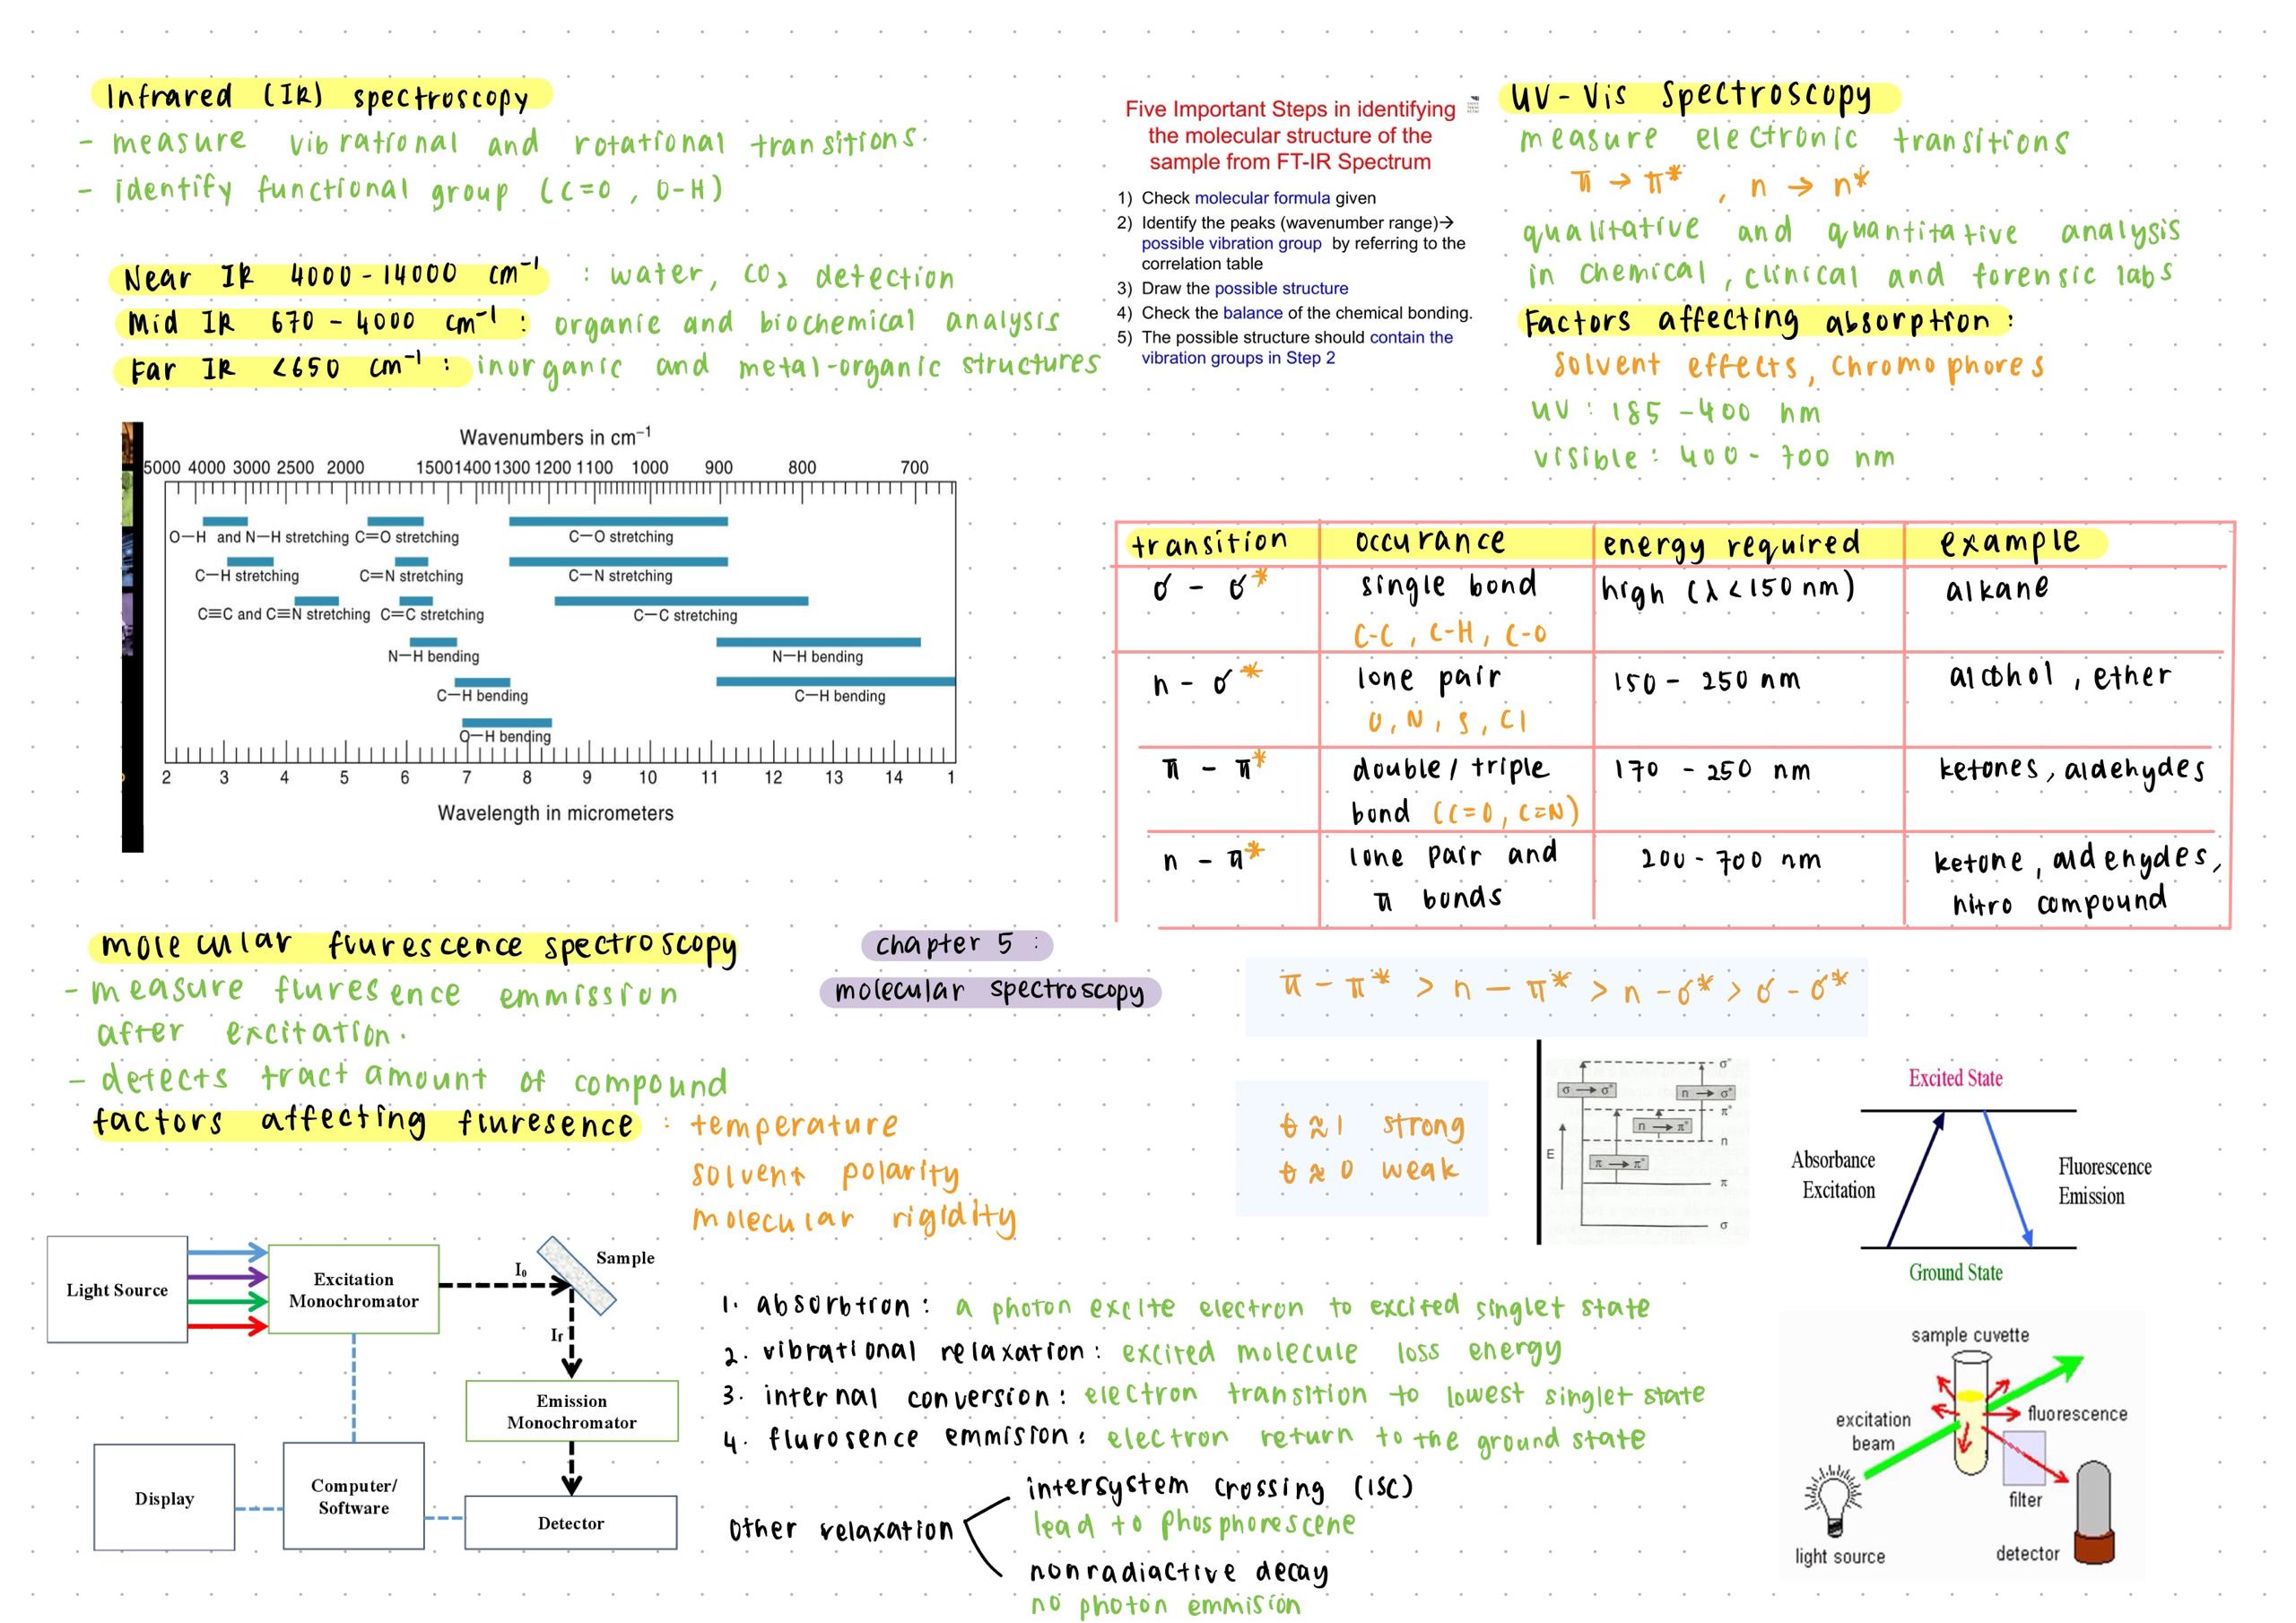 Infrared (IR) spectroscopy
- measure vibrational and rotational transitions.
- identify functional group (C=O, O-H)
Near IR 4000-14000 cm⁻¹ : water, CO₂ detection
Mid IR 670 - 4000 cm⁻¹ : organic and biochemical analysis
Far IR <650 cm⁻¹ : inorganic and metal-organic structures
Wavenumbers in cm⁻¹
5000 4000 3000 2500 2000 1500 1400 1300 1200 1100 1000 900 800 700
O—H and N—H stretching C=O stretching C—O stretching
C—H stretching C=N stretching C—N stretching
C≡C and C≡N stretching C=C stretching C—C stretching
N—H bending N—H bending
C—H bending C—H bending
O—H bending
2 3 4 5 6 7 8 9 10 11 12 13 14 1
Wavelength in micrometers
Five Important Steps in identifying
the molecular structure of the
sample from FT-IR Spectrum
1) Check molecular formula given
2) Identify the peaks (wavenumber range)→
possible vibration group by referring to the
correlation table
3) Draw the possible structure
4) Check the balance of the chemical bonding.
5) The possible structure should contain the
vibration groups in Step 2
UV-Vis Spectroscopy
measure electronic transitions
π → π* , n → n*
qualitative and quantitative analysis
in chemical, clinical and forensic labs
Factors affecting absorption:
solvent effects, chromophores
UV : 185 - 400 nm
visible : 400 - 700 nm
transition occurance energy required example
σ - σ* single bond high (λ<150 nm) alkane
C-C, C-H, C-O
n - σ* lone pair 150 - 250 nm alcohol, ether
O, N, S, Cl
π - π* double/triple 170 - 250 nm ketones, aldehydes
bond (C=O, C=N)
n - π* lone pair and 200-700 nm ketone, aldehydes,
π bonds nitro compound
π - π* > n - π* > n - σ* > σ - σ*
molecular flurescence spectroscopy
- measure fluresence emmission
after excitation.
- detects tract amount of compound
factors affecting fluresence : temperature
solvent polarity
molecular rigidity
chapter 5 :
molecular spectroscopy
ϕ ≈ 1 strong
ϕ ≈ 0 weak
σ → σ* n → σ* n → π* π → π*
σ* π* n π σ
E
Excited State
Absorbance
Excitation
Fluorescence
Emission
Ground State
Light Source
Excitation
Monochromator
I₀
Sample
If
Emission
Monochromator
Detector
Computer/
Software
Display
1. absorbtron : a photon excite electron to excited singlet state
2. vibrational relaxation : excited molecule loss energy
3. internal conversion : electron transition to lowest singlet state
4. flurosence emmision : electron return to the ground state
Other relaxation
intersystem crossing (ISC)
lead to phosphorescene
nonradiactive decay
no photon emmision
sample cuvette
excitation
beam
fluorescence
filter
light source
detector